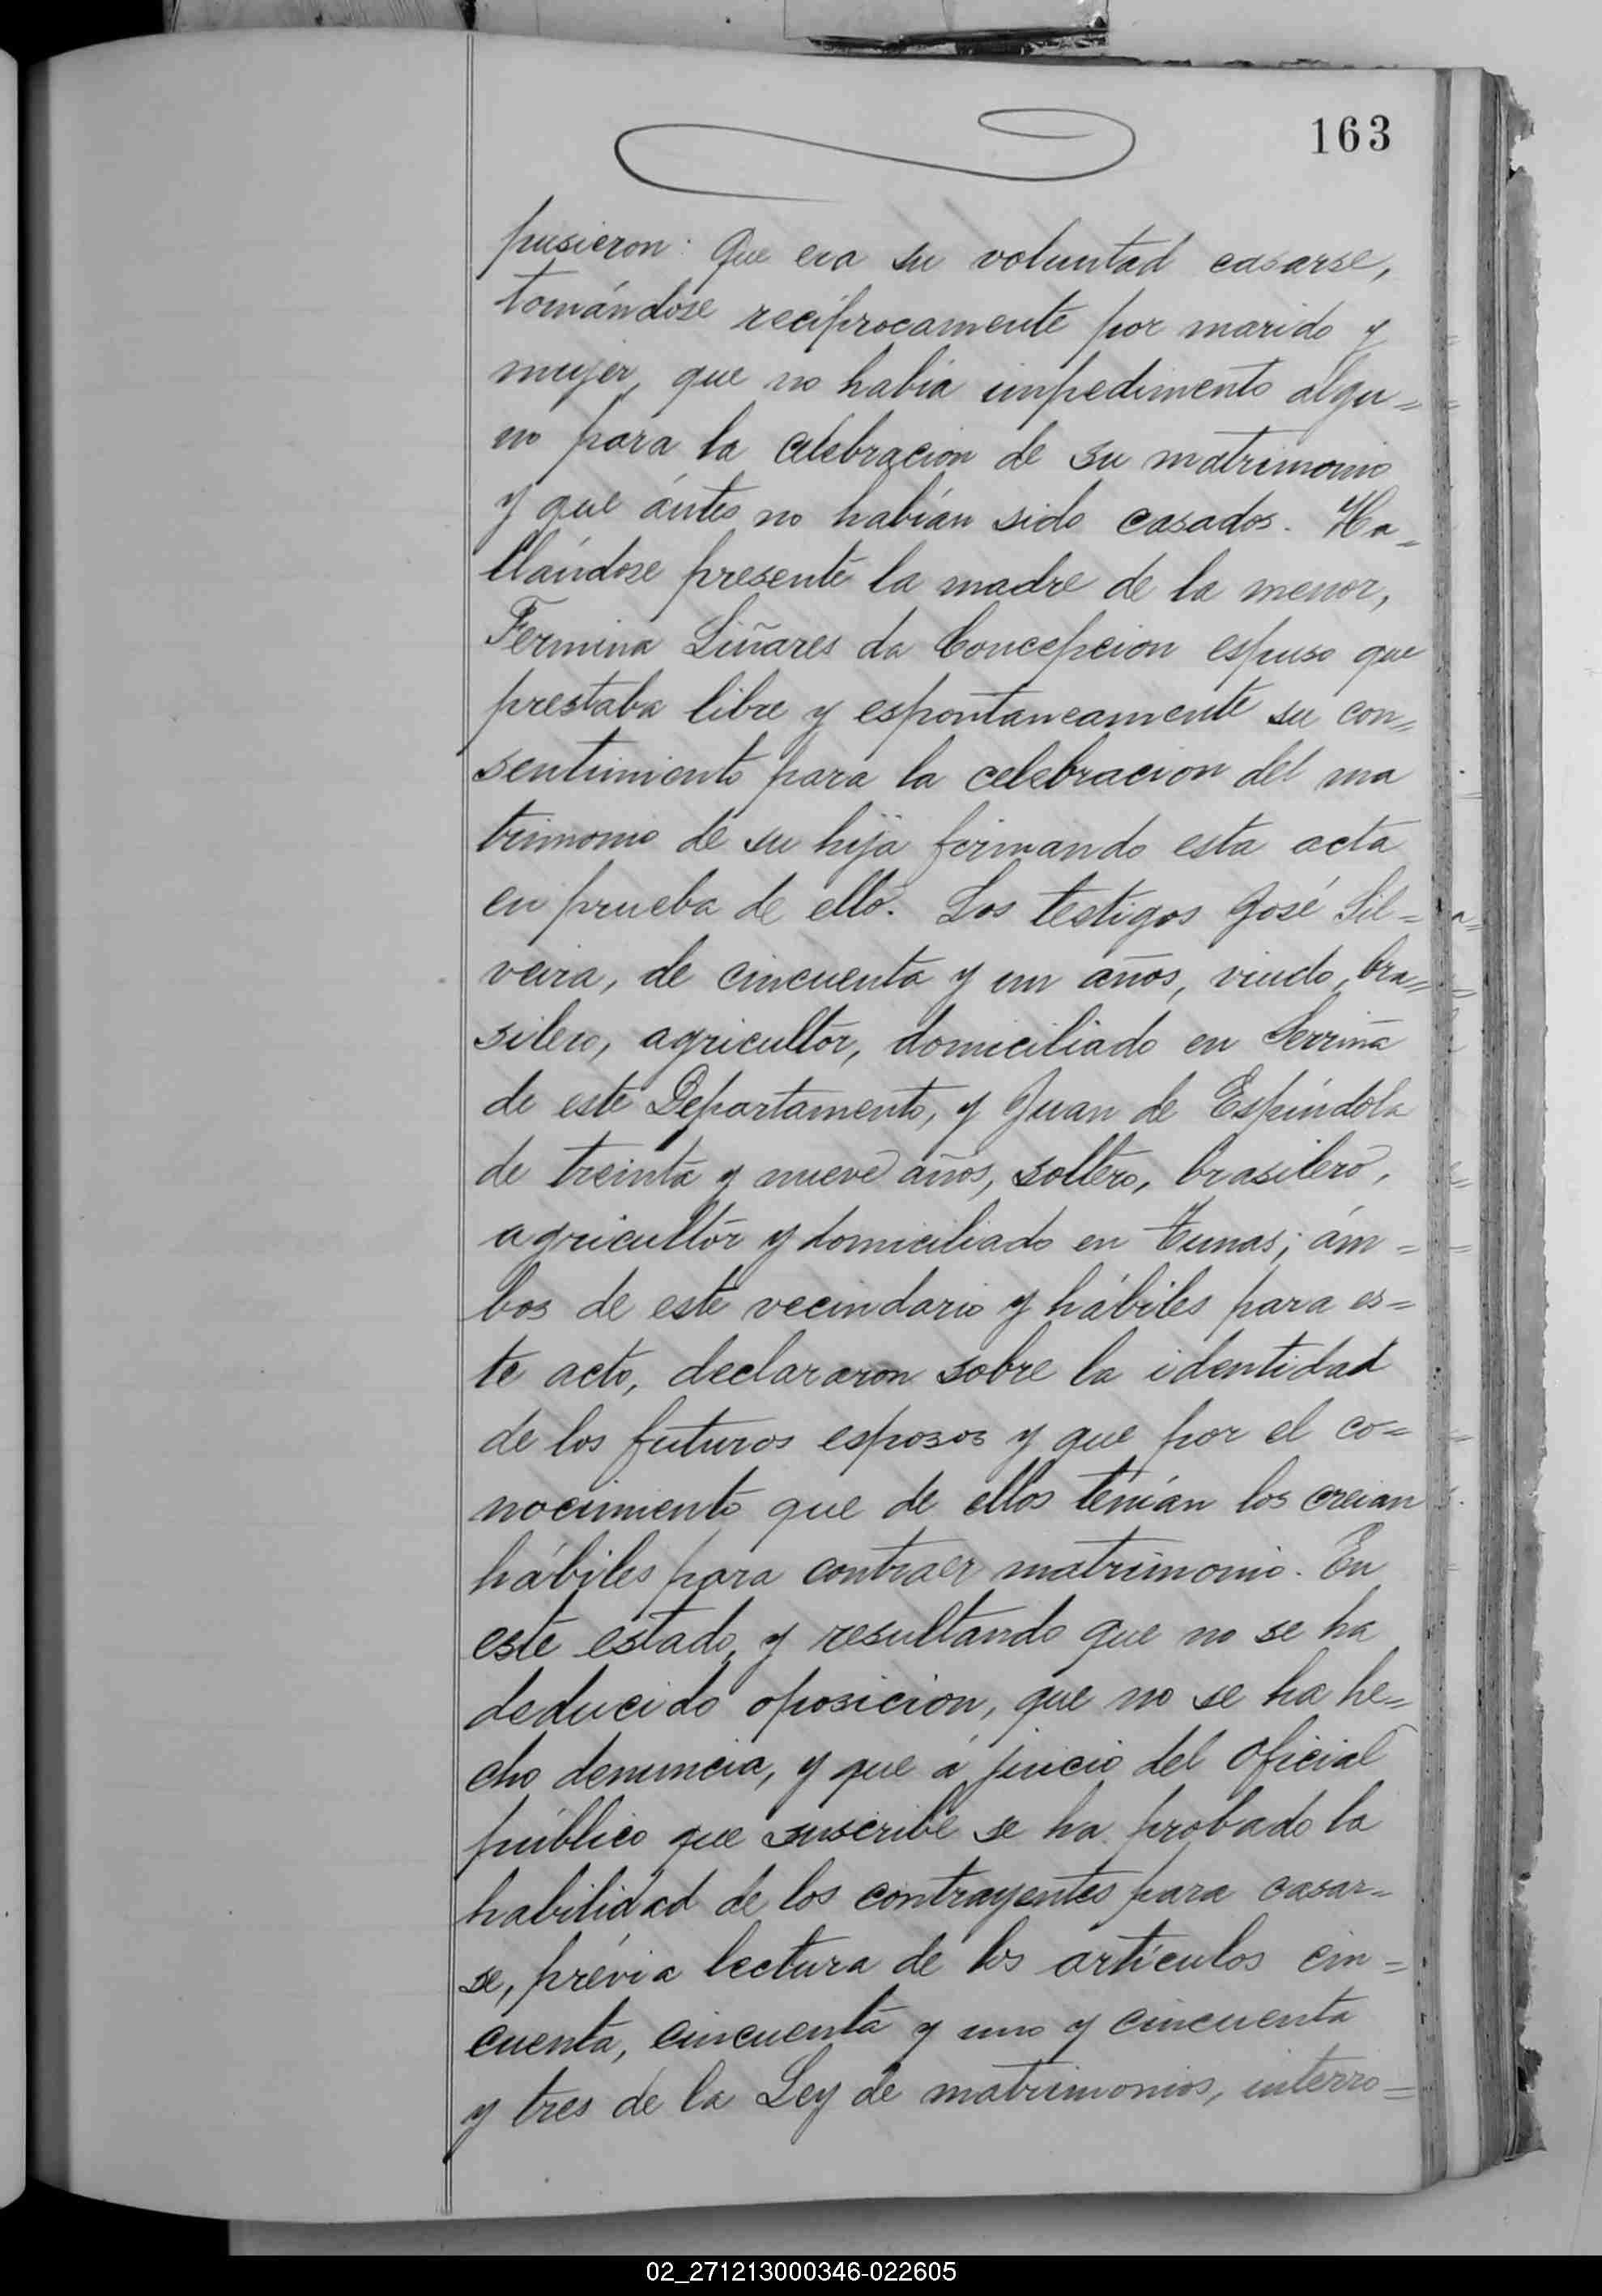 163
pusieron: Que era su voluntad casarse,
tomándose recíprocamente por marido y
mujer, que no había impedimento algu=
no para la celebracion de su matrimonio
y que ántes no habían sido casados. Ha=
llándose presente la madre de la menor,
Fermina Liñares da Concepcion espuso que
prestaba libre y espontaneamente su con=
sentimiento para la celebracion del ma
trimonio de su hija firmando esta acta
en prueba de ello. Los testigos José Sil=
veira, de cincuenta y un años, viudo, bra=
silero, agricultor, domiciliado en Serriña
de este Departamento, y Juan de Espíndola
de treinta y nueve años, soltero, brasilero,
agricultor y domiciliado en Tunas; ám=
bos de este vecindario y hábiles para es=
te acto, declararon sobre la identidad
de los futuros esposos y que por el co=
nocimiento que de ellos tenían los creian
hábiles para contraer matrimonio. En
este estado, y resultando que no se ha
deducido oposicion, que no se ha he=
cho denuncia, y que á juicio del Oficial
público que suscribe se ha probado la
habilidad de los contrayentes para casar=
se, prévia lectura de los artículos cin=
cuenta, cincuenta y uno y cincuenta
y tres de la Ley de matrimonios, interro=
02_271213000346-022605